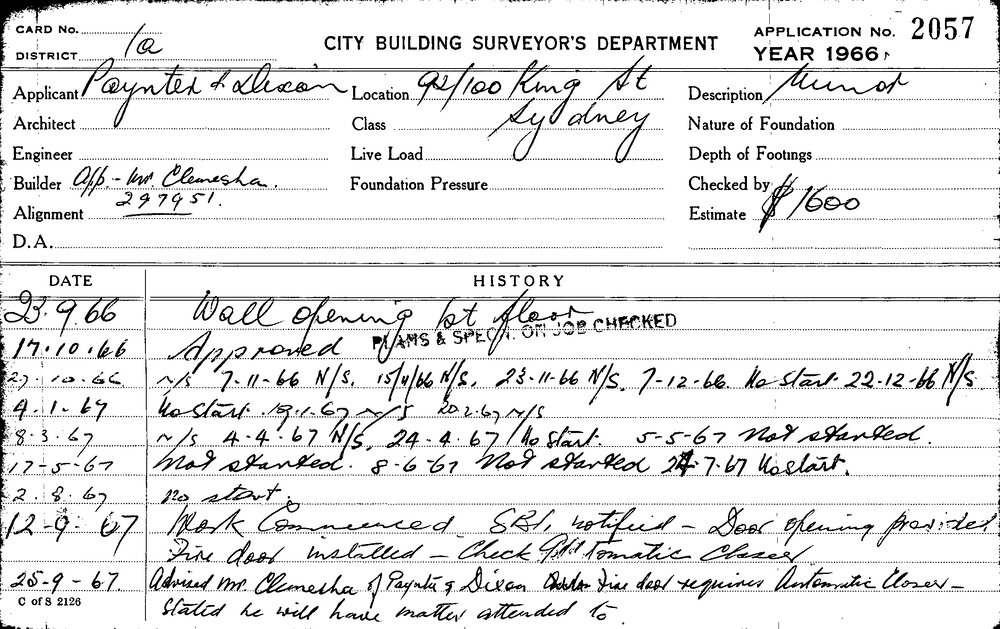 CARD No.
DISTRICT 1a
CITY BUILDING SURVEYOR'S DEPARTMENT
APPLICATION No. 2057
YEAR 1966
Applicant Paynter & Dixon
Location 92/100 King St
Sydney
Description Minor
Architect
Class
Nature of Foundation
Engineer
Live Load
Depth of Footings
Builder App.- Mr. Clemesha.
297951.
Foundation Pressure
Checked by
Alignment
Estimate $1600
D.A.
DATE HISTORY
23.9.66 Wall opening 1st floor
PLANS & SPECN. ON JOB CHECKED
17.10.66 Approved
27.10.66 N/S 7-11-66 N/S. 15/11/66 N/S. 23-11-66 N/S. 7-12-66. No Start. 22-12-66 N/S.
4.1.67 No start. 19.1.67 N/S 20.2.67 N/S
8.3.67 N/S 4-4.67 N/S. 24-4.67 No Start. 5-5-67 Not started.
17-5-67 Not started. 8-6-67 Not started 24.7.67 No start.
2.8.67 no start.
12-9-67 Work Commenced SBI. notified - Door opening provided
Fire door installed - Check tomatic Closer
25-9-67. Advised Mr. Clemesha of Paynter & Dixon Fire door requires Automatic Closer -
stated he will have matter attended to.
C of S 2126